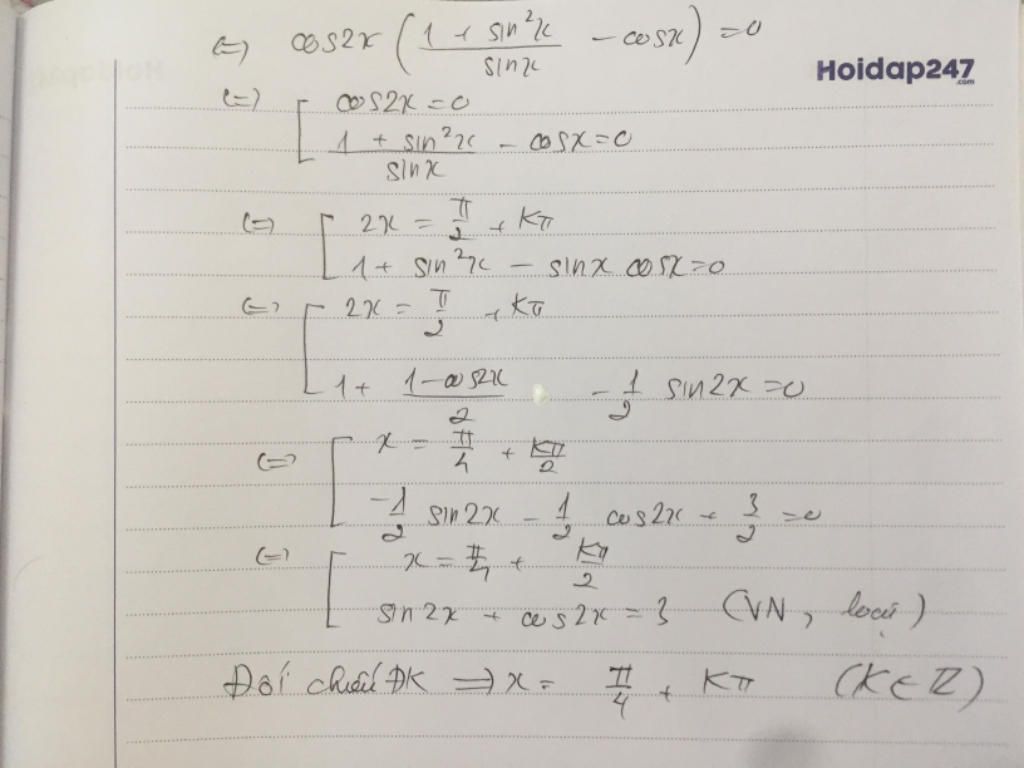 (=) cos2x ( (1 + sin²x)/sinx - cosx ) = 0
Hoidap247
.com
(=) [ cos2x = 0
(1 + sin²x)/sinx - cosx = 0
(=) [ 2x = π/2 + Kπ
1 + sin²x - sinx cosx = 0
(=) [ 2x = π/2 + Kπ
1 + (1 - cos2x)/2 - 1/2 sin2x = 0
(=) [ x = π/4 + Kπ/2
-1/2 sin2x - 1/2 cos2x + 3/2 = 0
(=) [ x = π/4 + Kπ/2
sin2x + cos2x = 3 (VN, loại)
Đối chiếu ĐK => x = π/4 + Kπ (K ∈ Z)